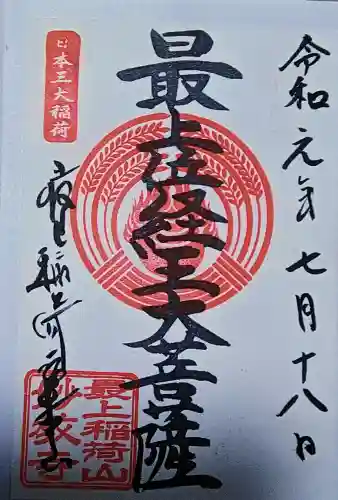 令和元年七月十八日
最上位経王大菩薩
日本三大稲荷
最上稲荷山
妙教寺